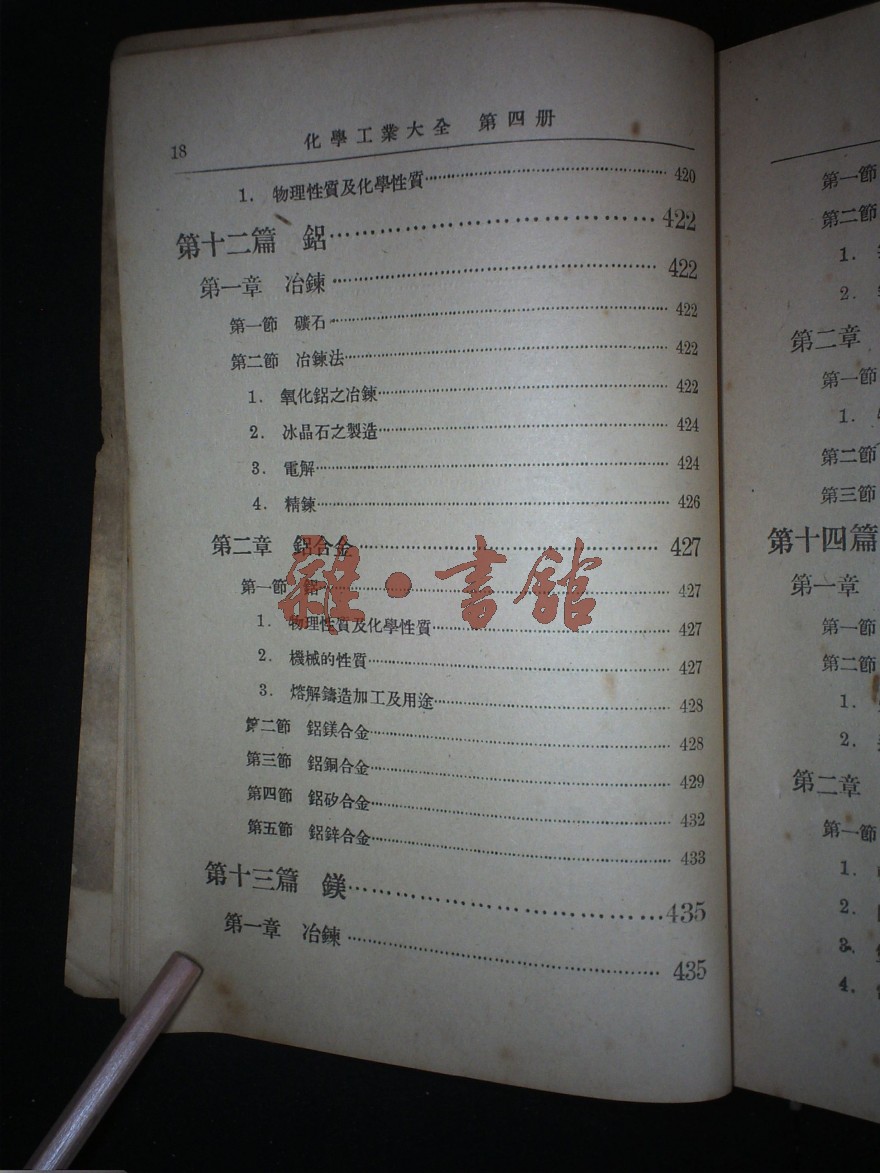 18 化學工業大全 第四册
1. 物理性質及化學性質 420
第十二篇 鋁 422
第一章 冶鍊 422
第一節 礦石 422
第二節 冶鍊法 422
1. 氧化鋁之冶鍊 422
2. 冰晶石之製造 424
3. 電解 424
4. 精鍊 426
第二章 鋁合金 427
第一節 鋁 427
1. 物理性質及化學性質 427
2. 機械的性質 427
3. 熔解鑄造加工及用途 428
第二節 鋁鎂合金 428
第三節 鋁銅合金 429
第四節 鋁矽合金 432
第五節 鋁鋅合金 433
第十三篇 鎂 435
第一章 冶鍊 435
雜·書舘
第一節
第二節
1.
2.
第二章
第一節
1.
第二節
第三節
第十四篇
第一章
第一節
第二節
1.
2.
第二章
第一節
1.
2.
3.
4.